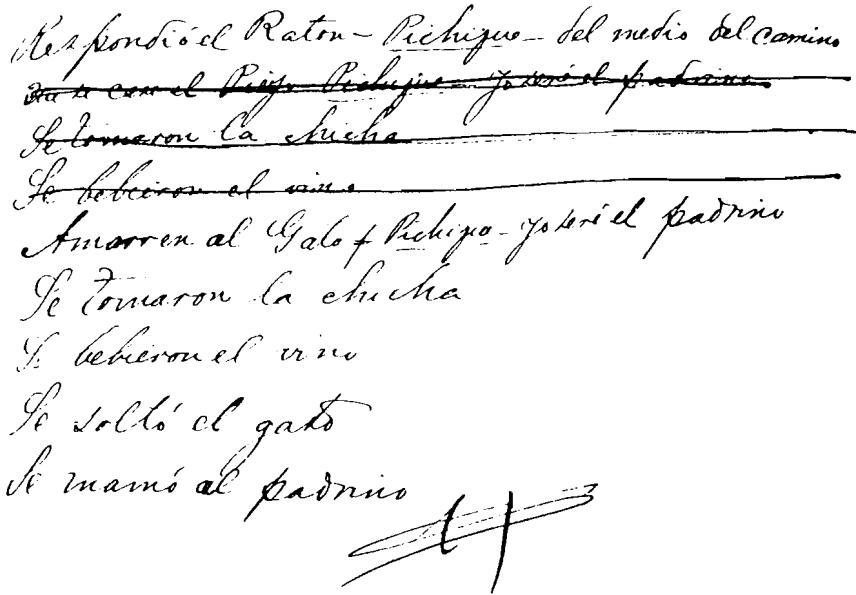 Respondió el Raton - Pichique - del medio del camino
se case el Piojo Pichique - yo seré el padrino
Se tomaron la chicha
Se bebieron el vino
Amarren al Gato Pichique - yo seré el padrino
Se tomaron la chicha
Se bebieron el vino
Se soltó el gato
Se mamó al padrino